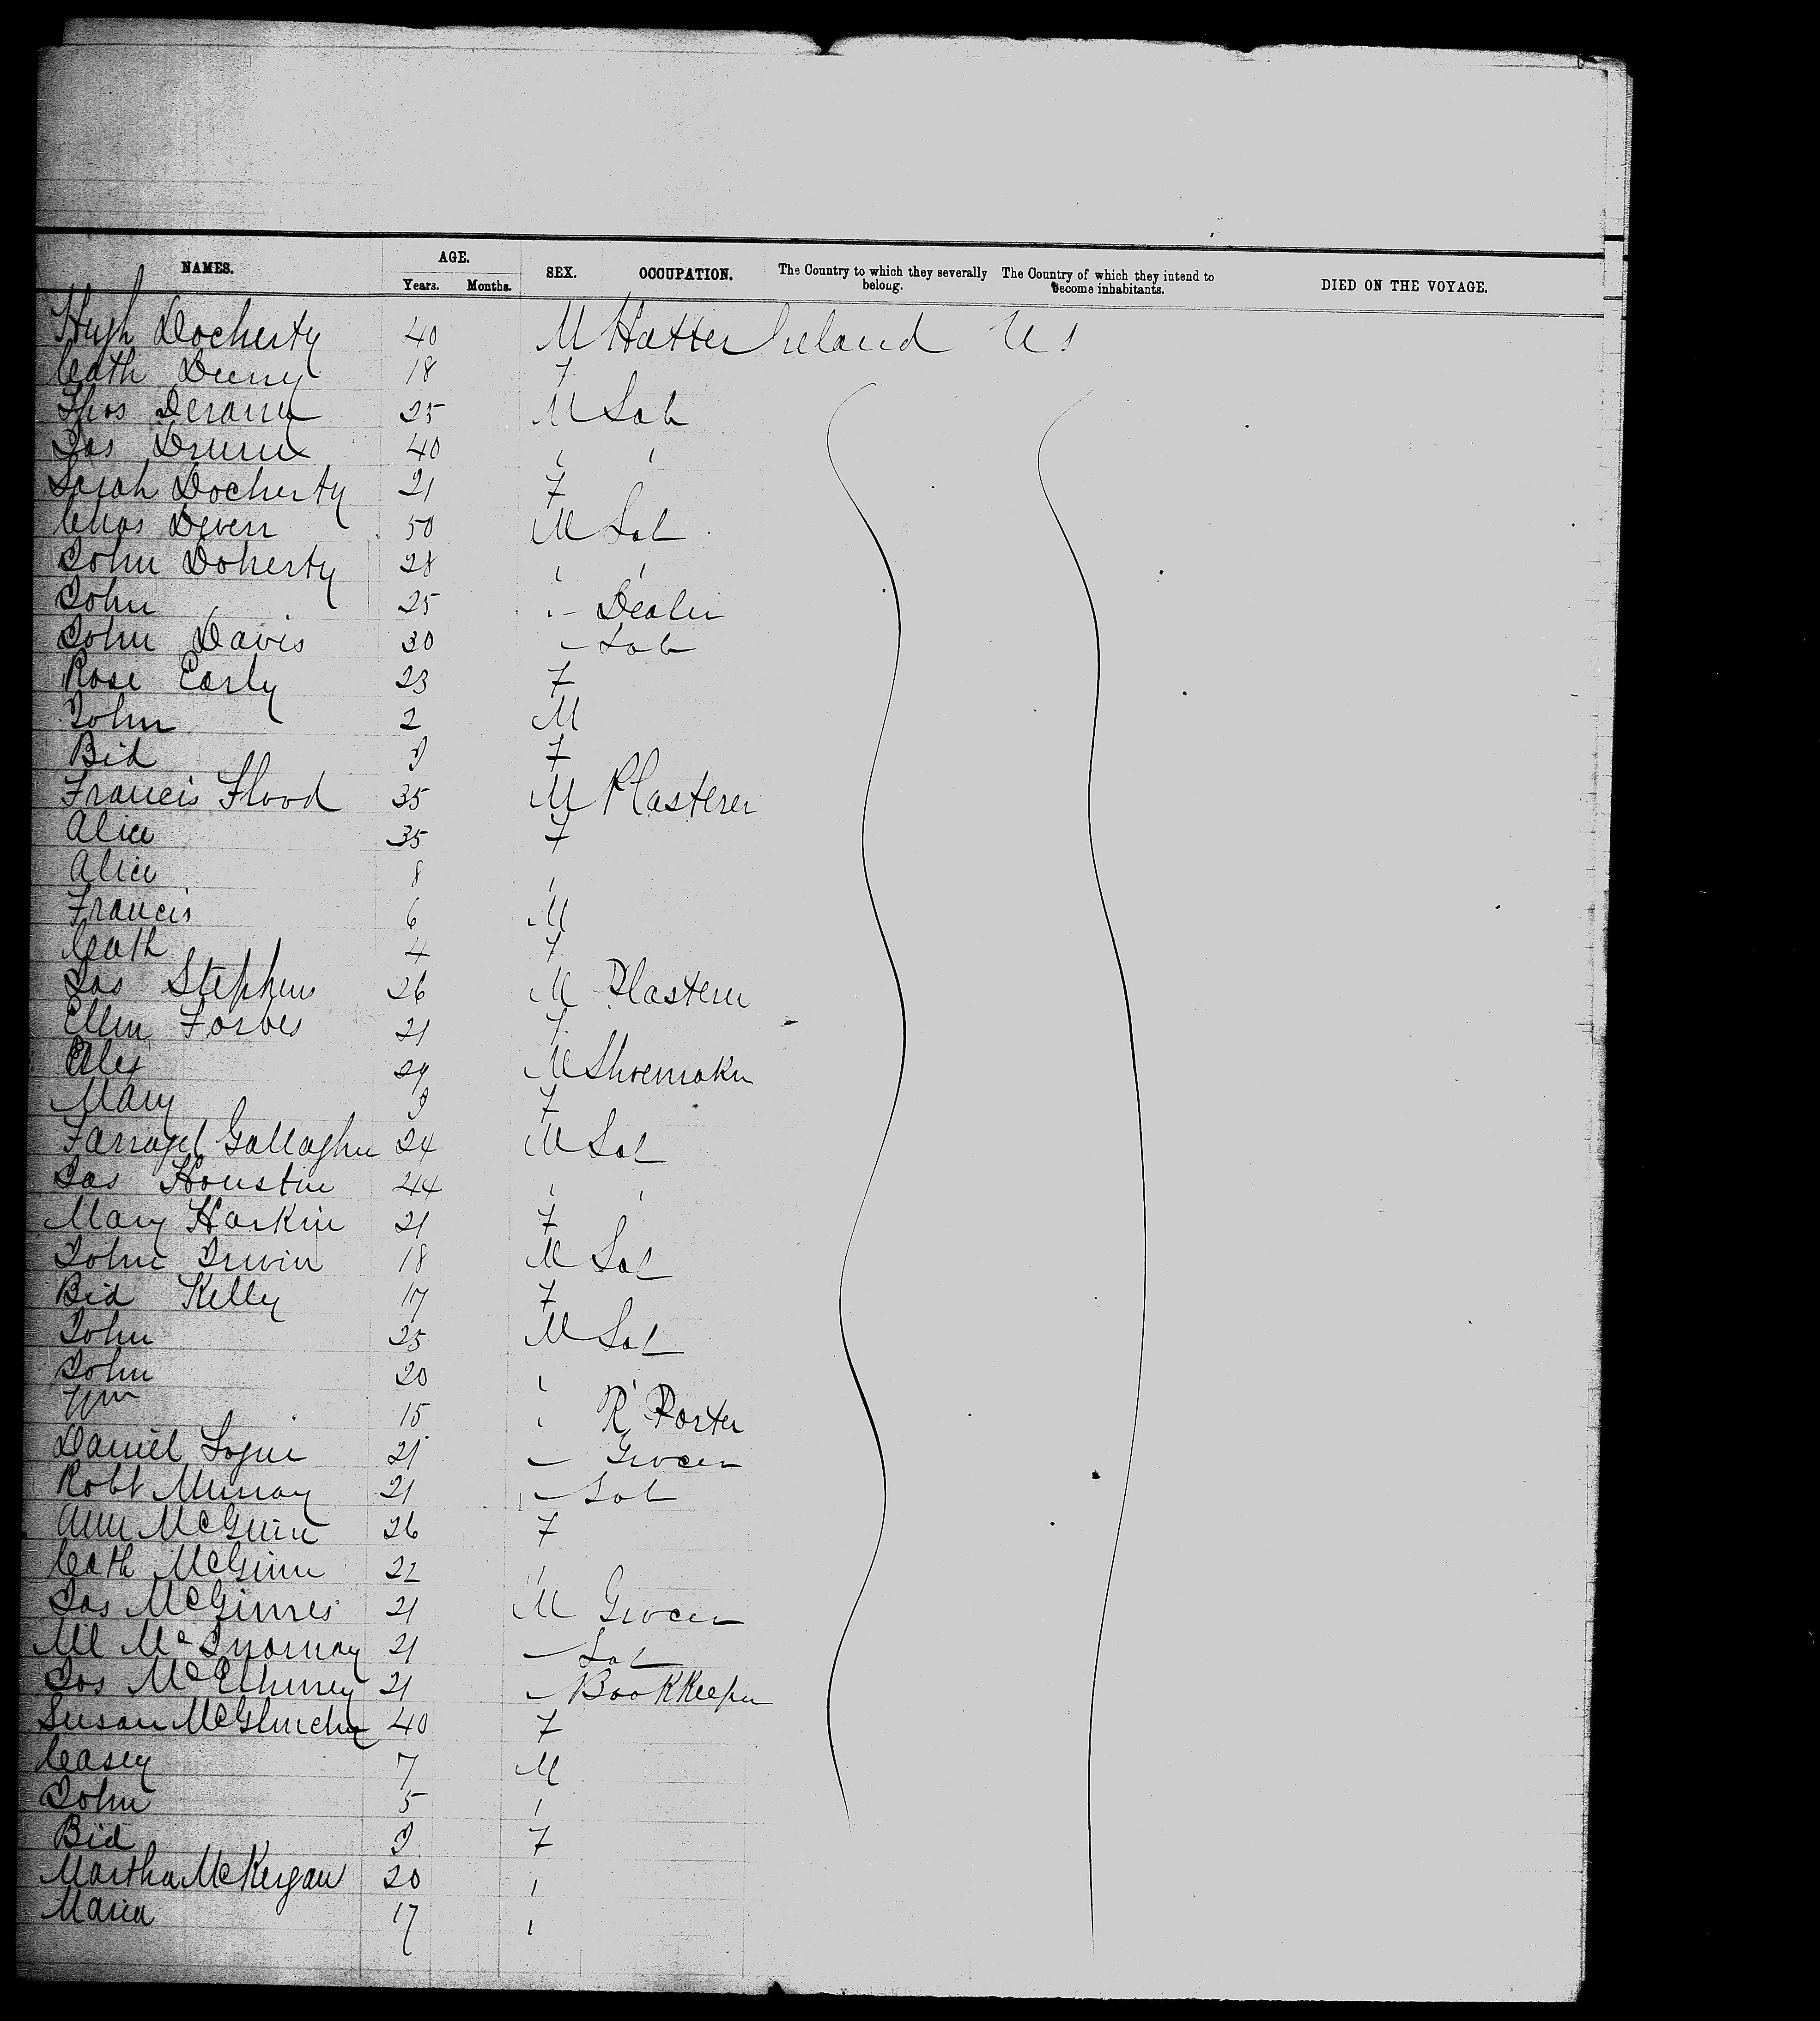 NAMES. AGE. SEX. OCCUPATION. The Country to which they severally belong. The Country of which they intend to become inhabitants. DIED ON THE VOYAGE.
Years. Months.
Hugh Docherty 40 M Hatter Ireland U S
Cath Deeny 18 F
Thos 25 M Lab
Jas 40 " "
Sarah Docherty 21 F
Chas Deven 50 M Lab
John Doherty 28 " "
John " 25 " Dealer
John Davis 30 - Lab
Rose Early 23 F
John 2 M
Bid 3 F
Francis Flood 35 M Plasterer
Alice 35 F
Alice 8 "
Francis 6 M
Cath 4 F
Jas Stephens 26 M Plasterer
Ellen Forbes 21 F
Alex 29 M Shoemaker
Mary 3 F
Gallagher 24 M Lab
Jas Houstin 44 " "
Mary Harkin 21 F
John Irwin 18 M Lab
Bid Kelly 17 F
John 25 M Lab
John 20 " "
Wm 15 " R Porter
Daniel Logue 21 - Grocer
Robt Murray 21 - Lab
Ann McGuire 26 F
Cath McGinn 22 "
Jas McGinnes 21 M Grocer
Ml 21 - Lab
Jos McElhinney 21 - Bookkeeper
Susan McGlinchy 40 F
Casey 7 M
John 5 "
Bid 3 F
Martha McKergan 20 "
Maria 17 "